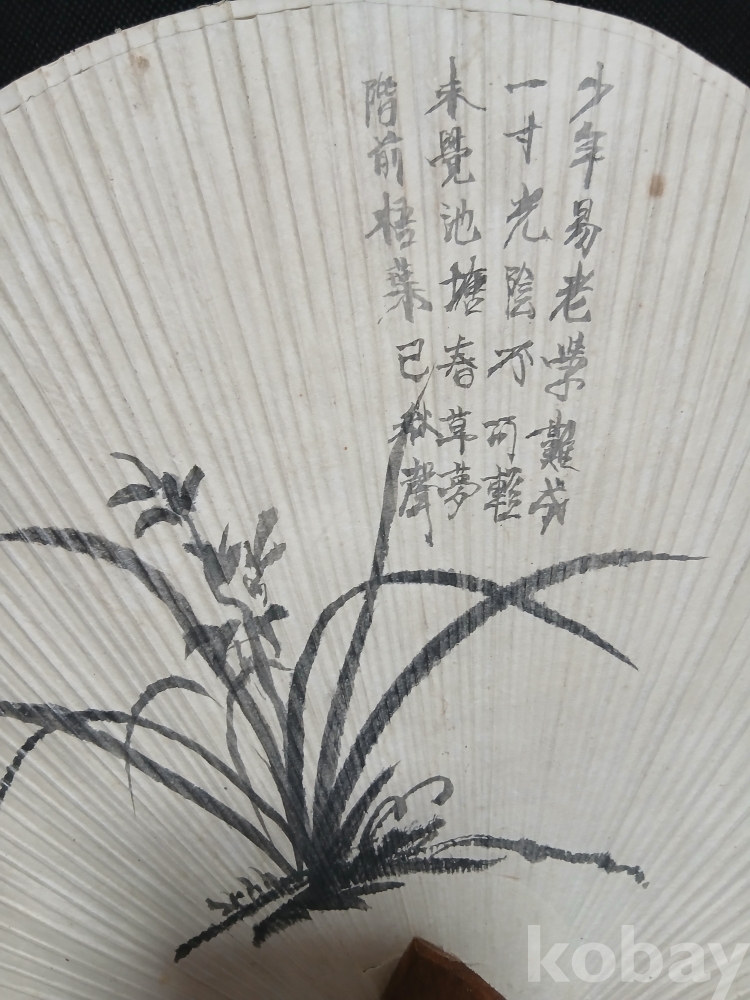 少年易老學難成
一寸光陰不可輕
未覺池塘春草夢
階前梧葉已秋聲
kobay